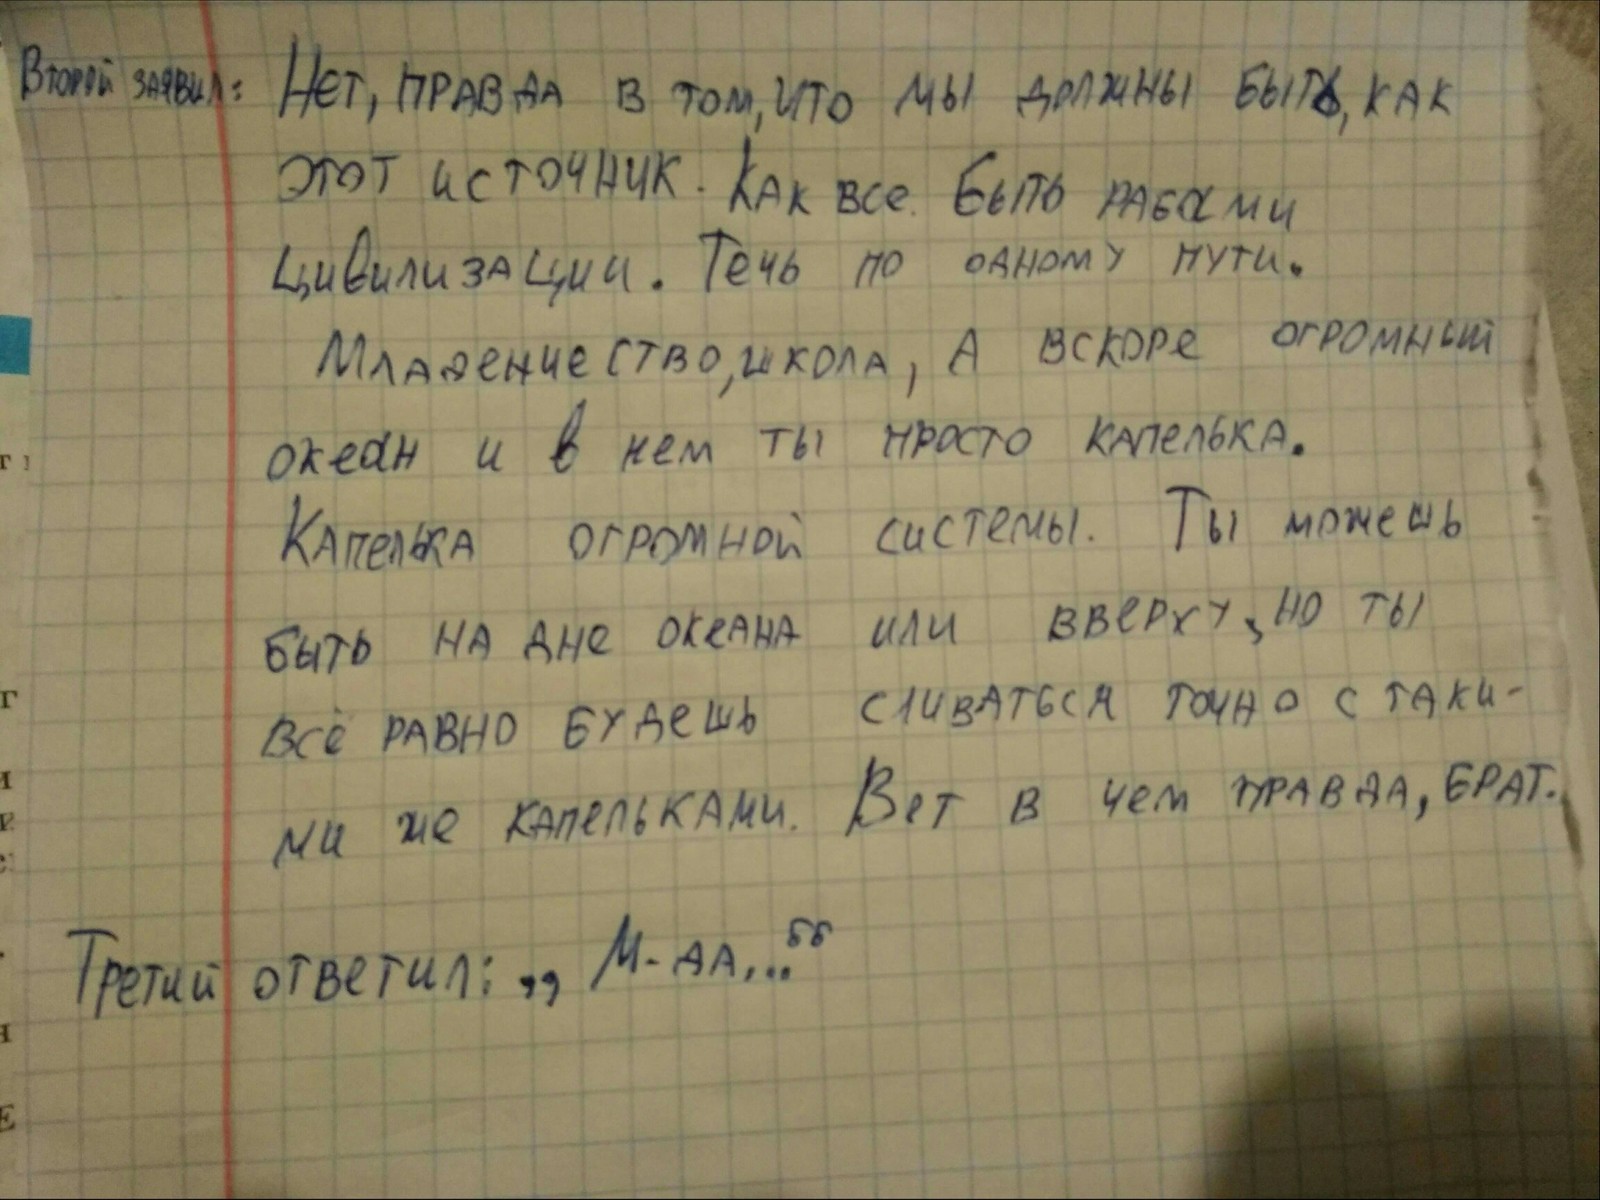 Второй заявил: Нет, правда в том, что мы должны быть, как
этот источник. Как все. Быть рабами
цивилизации. Течь по одному пути.
Младенчество, школа, а вскоре огромный
океан и в нем ты просто капелька.
Капелька огромной системы. Ты можешь
быть на дне океана или вверху, но ты
всё равно будешь сливаться точно с таки-
ми же капельками. Вет в чем правда, брат.
Третий ответил: „ М-да,..“